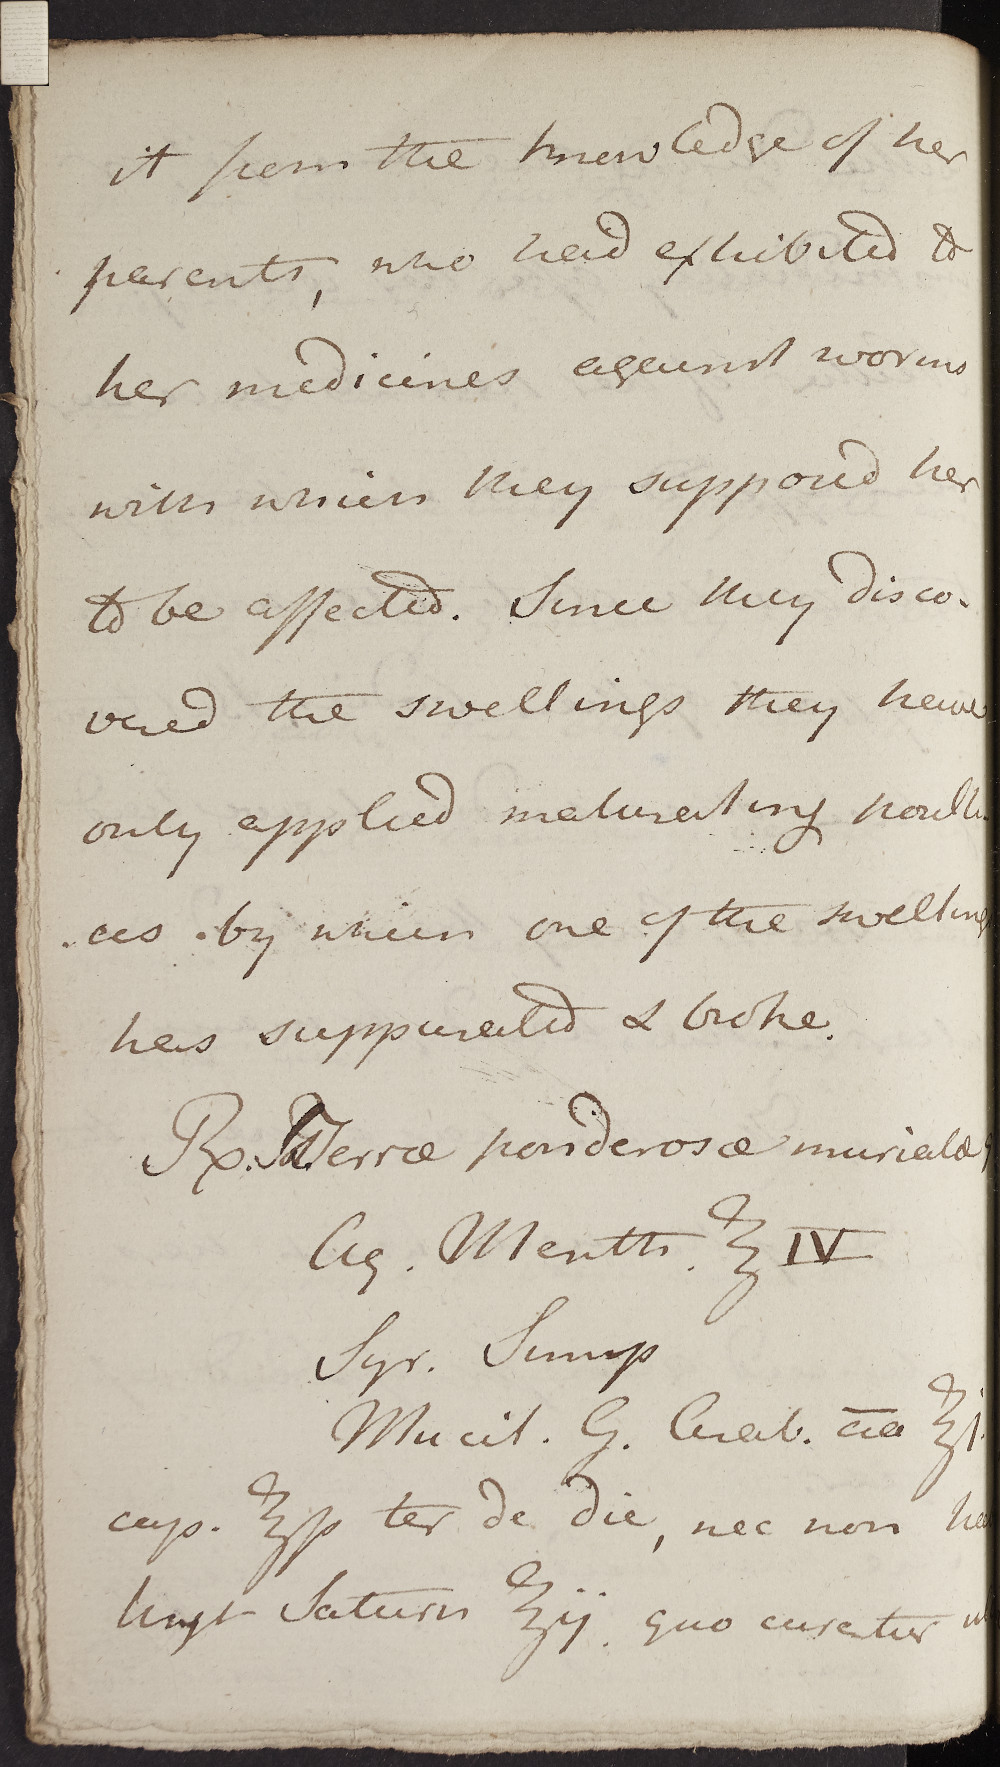 it from the knowledge of her
parents, who had exhibited to
her medicines against worms
with which they supposed her
to be affected. Since they disco-
vered the swellings they have
only applied maturating poulti
ces by which one of the swellings
has suppurated & broke.
Rx. Terræ ponderosæ muriatæ
Aq. Menth. ℥ IV
Syr. Simp
Mucil. G. Arab. āa ℥j.
cap. ℥ß ter de die, nec non
Ungt Saturn ℥ij. quo curetur